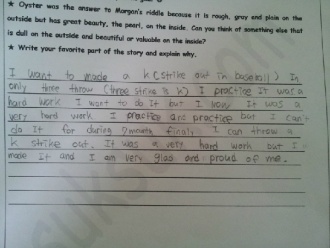 ★ Oyster was the answer to Morgan's riddle because it is rough, gray and plain on the
outside but has great beauty, the pearl, on the inside. Can you think of something else that
is dull on the outside and beautiful or valuable on the inside?
★ Write your favorite part of the story and explain why.
I want to made a k (strike out in baseball) In
only three throw (three strike is k) I practice It was a
hard work I want to do It but I know It was a
very hard work I practice and practice but I can't
do It for during 7month finaly I can throw a
k strike out. It was a very hard work but I
made It and I am very glad and proud of me.